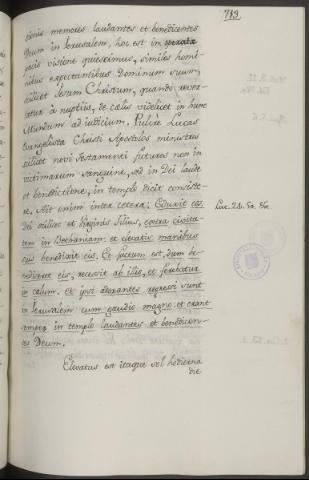 789
sionis memores laudantes et benedicentes
Deum in Ierusalem, hoc est in sperata
pacis visione quiescimus, similes homi-
nibus expectantibus Dominum suum,
scilicet Iesum Christum, quando rever-
tatur à nuptiis, de cœlis videlicet in hunc
Mundum ad iudicium. Pulcrè Lucas
Evangelista Christi Apostolos ministros
scilicet novi Testamenti futuros non in
victimarum sanguine, sed in Dei laude
et benedictione, in templo dicit consiste-
re. Ait enim inter cetera: Eduxit eos,
Dei scilicet et Virginis filius, extra civita-
tem in Bethaniam: et elevatis manibus
eius benedixit eis. Et factum est, dum be-
nediceret eis, recessit ab illis, et ferebatur
in cælum. et ipsi adorantes regressi sunt
in Ierusalem cum gaudio magno: et erant
semper in templo laudantes et benedicen-
tes Deum.
Luc. 24. 50.
Elevatus est itaque vel hodierna
die